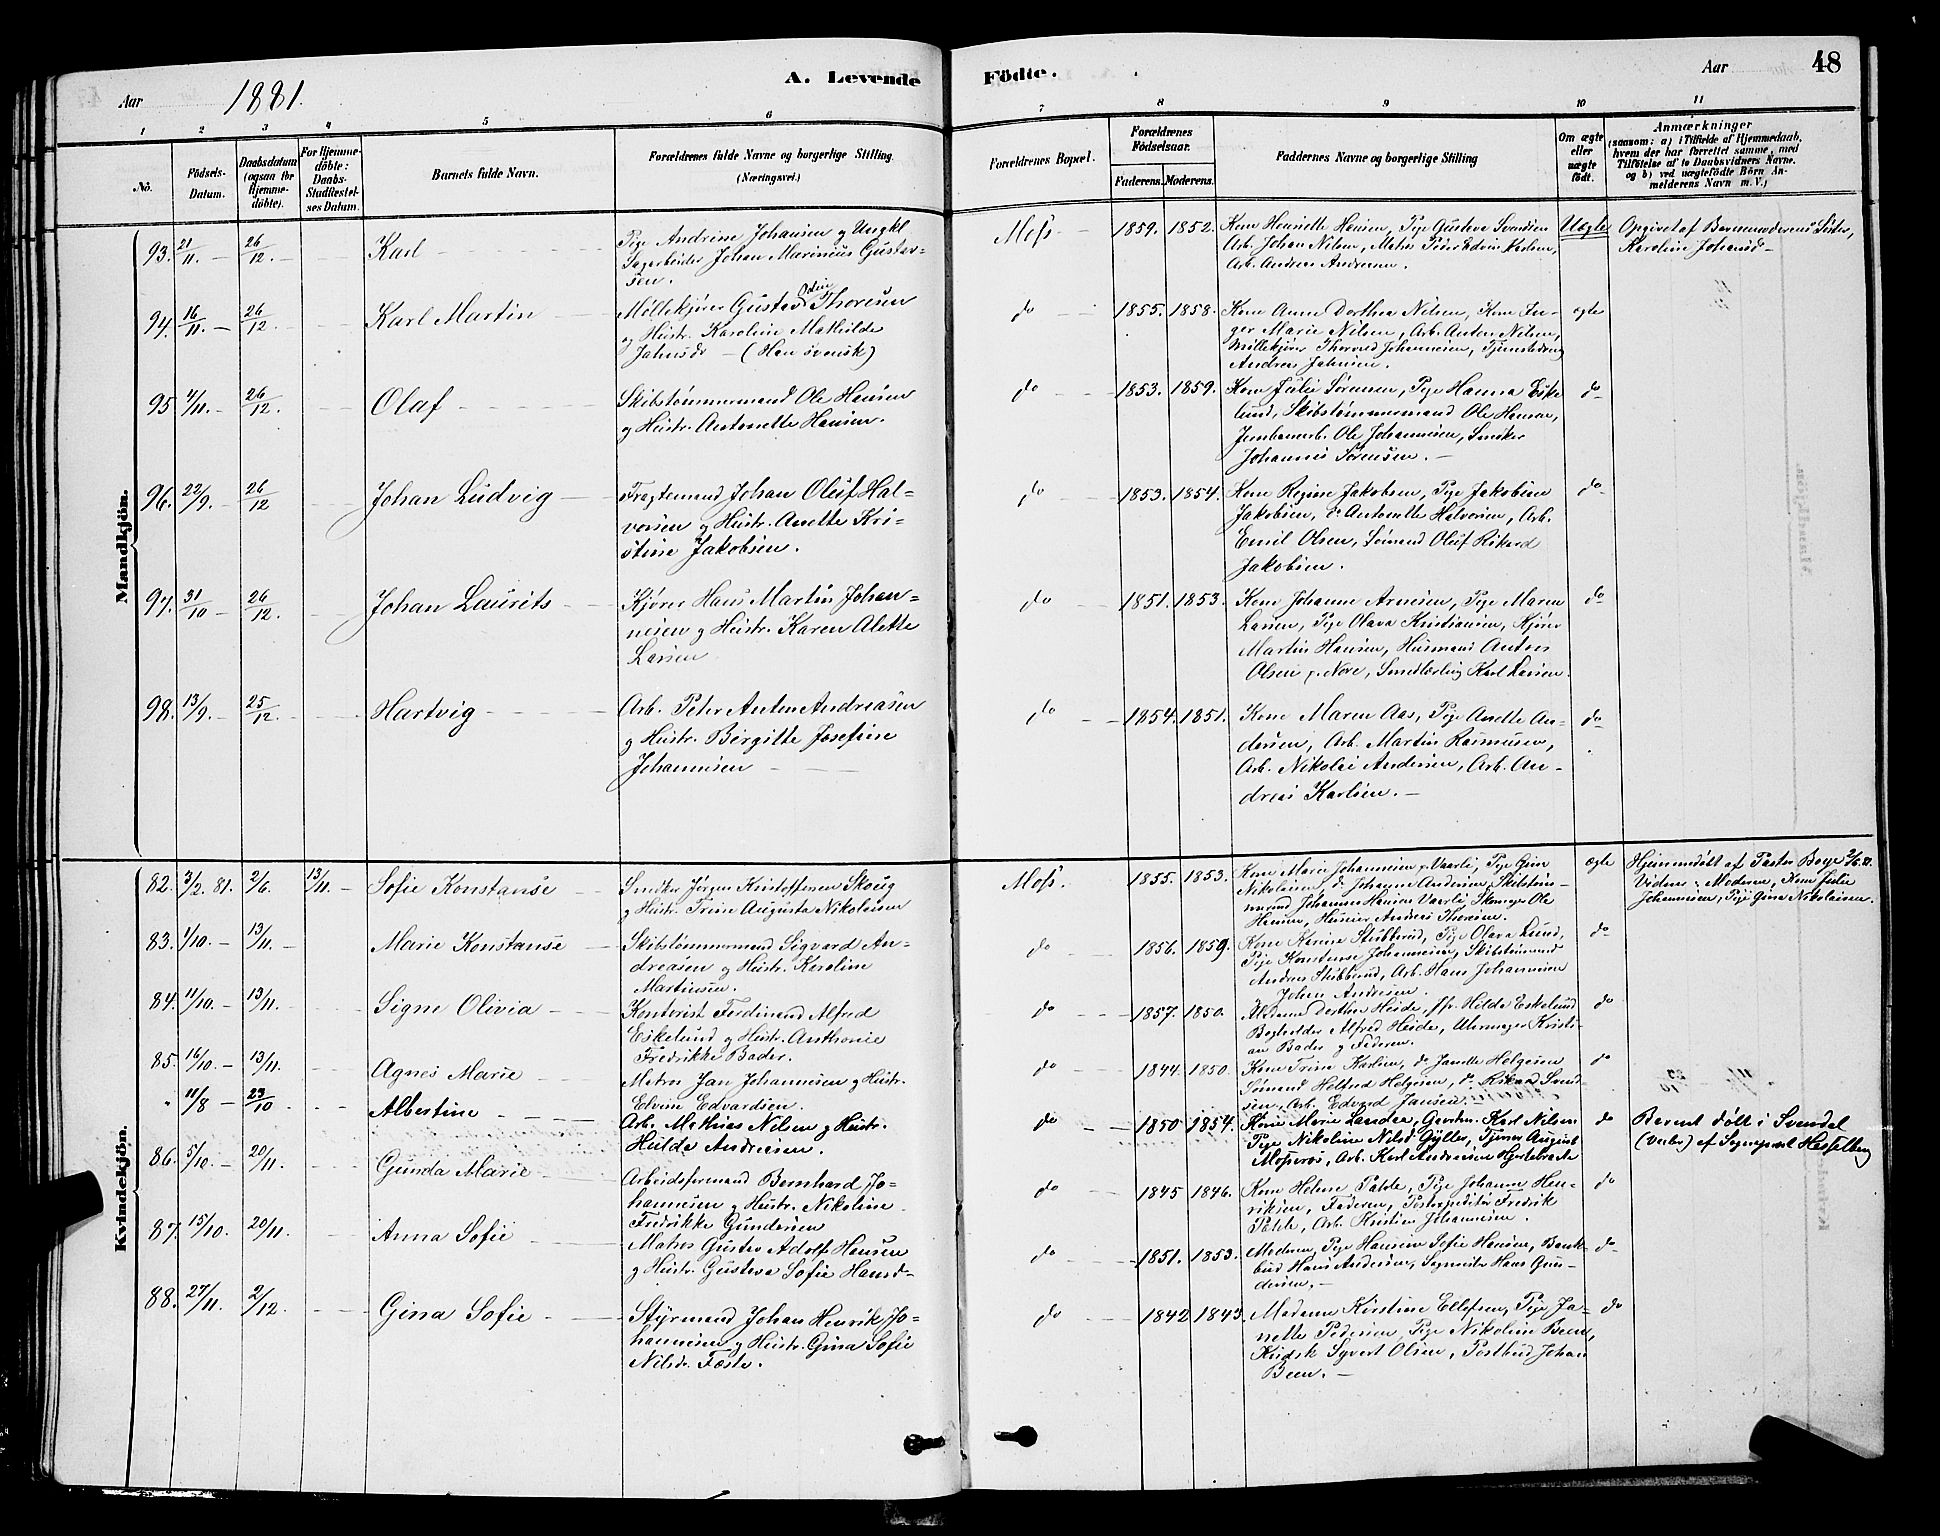 A. Levende Födte.
Aar 1881.
Aar 48
1 2 3 4 5 6 7 8 9 10 11
No.
Födsels-Datum.
Daabsdatum (ogsaa for Hjemmedöbte).
For Hjemmedöbte: Daabs-Stadfæstelses Datum.
Barnets fulde Navn.
Forældrenes fulde Navne og borgerlige Stilling. (Næringsvei.)
Forældrenes Bopæl.
Forældrenes Födselsaar.
Faderens. Moderens.
Faddernes Navne og borgerlige Stilling
Om ægte eller uægte födt.
Anmærkninger
(saasom: a) i Tilfælde af Hjemmedaab, hvem der har forrettet samme, med Tilföielse af to Daabsvidners Navne. og b) ved uægtefödte Börn Anmelderens Navn m. V.)
Mandkjön.
93. 21/11. 26/12. Karl
Pige Andrine Johansen og Ungkl
Sagarbeider Johan Marinius Gustav-
sen.
Moss 1859. 1852.
Kone Henriette Hansen, Pige Gustava Svendsen
Arb. Johan Nilsen, Matros Peder Edvin Karlsen,
Arb. Andreas Andersen.
Uægte
Opgivet af Barnemoderens Søster,
Karoline Johansd
94. 16/11. 26/12 Karl Martin
Møllekjører Gustav Odin Thoresen
og Hustr. Karoline Mathilde
Jahnsdr (Han svensk)
do 1855. 1858.
Kone Anne Dorthea Nilsen, Kone In-
ger Marie Nilsen, Arb. Anton Nilsen,
Møllekjører Thorvald Johannesen, Tjenestedreng
Andreas Jahnsen.
ægte
95 4/11. 26/12. Olaf
Skibstømmermand Ole Hansen
og Hustr. Antonette Hansen.
do 1853. 1859.
Kone Julie Sørensen, Pige Hanna Eske
lund, Skibstømmermand Ole Hansen,
Jernbanearb. Ole Johannesen, Snedker
Johannes Sørensen.
do
96. 22/9. 26/12 Johan Ludvig
Fragtemand Johan Oluf Hal-
vorsen og Hustr. Anette Kri-
stine Jakobsen.
do 1853. 1854.
Kone Regine Jakobsen, Pige Jakobine
Jakobsen, do Antonette Halvorsen, Arb.
Emil Olsen, Sømand Oluf Rikard
Jakobsen.
do
97. 31/10 26/12. Johan Laurits
Kjører Hans Martin Johan-
nesen og Hustr. Karen Alette
Larsen
do 1851. 1853.
Kone Johanne Arnesen, Pige Maren
Larsen, Pige Olava Kristiansen, Kjører
Martin Hansen, Husmand Anders
Olsen p. Nore, Smedlærling Karl Larsen.
do
98. 13/9. 25/12. Hartvig
Arb. Peter Anton Andreasen
og Hustr. Birgitte Josefine
Johannesen
do 1854. 1851.
Kone Maren Aas, Pige Anette An-
dersen, Arb. Martin Rasmusen,
Arb. Nikolai Andersen, Arb. An-
dreas Karlsen.
do
Kvindekjön.
82. 3/2. 81. 2/6. 13/11. Sofie Konstanse
Snedker Jørgen Kristoffersen Skoug
og Hustr. Trine Augusta Nikolaisen
Moss. 1855. 1853.
Kone Marie Johannesen p. Vaarli, Pige Gina
Nikolaisen, do Johanne Andersen, Skibstøm-
mermand Johannes Hansen Vaarli, Skomager Ole
Hansen, Andreas Thoresen.
ægte
Hjemmedøbt af Pastor Boye 2/6. 81.
Vidner: Moderen, Kone Julie
Johannesen, Pige Gina Nikolaisen.
83. 1/10. 13/11. Marie Konstanse
Skibstømmermand Sigvard An-
dreasen og Hustr. Karoline
Martinsen.
do 1856. 1859.
Kone Karine Stubberud, Pige Olava Lund,
Pige Konstanse Johannesen, Skibstømmermand
Anders Stubberud, Arb. Hans Johannesen
Johan Andersen.
do
84. 11/10. 13/11. Signe Olivia
Kontorist Ferdinand Alfred
Eskelund og Hustr. Anthonie
Fredrikke Bader.
do 1857. 1850.
Madame Dorthea Heide, Jfr. Hilda Eskelund
Bogholder Alfred Heide, Uhrmager Kristi-
an Bader og Faderen.
do
85. 16/10. 13/11. Agnes Marie
Matros Jan Johannesen og Hustr.
Elvine Edvardsen.
do 1844. 1850.
Kone Trine Karlsen, do Janette Helgesen
Sømand Helgesen, do Rikard Svend-
sen, Arb. Edvard Jansen.
do
" 11/8 23/10 Albertine
Arb. Mathias Nilsen og Hustr.
Hulda Andreasen.
do 1850 1854.
Kone Marie Landaa, Gaardm. Karl Nilsen
Pige Nikoline Nilsd. Gyller, Tjener August
Mosserøs, Arb. Karl Andreasen Hjortebraate
do
Barnet døbt i Svendal
(Vaaler) af Sognepræst Hesselberg
86. 5/10. 20/11. Gunda Marie
Arbeidsformand Bernhard Jo-
hannesen og Hustr. Nikoline
Fredrikke Gundersen
do 1845 1846.
Kone Helene Palde, Pige Johanne Hen-
riksen, Faderen, Postexpeditør Fredrik
Palde, Arb. Kristian Johannesen.
do
87. 15/10. 20/11. Anna Sofie
Matros Gustav Adolf Hansen
og Hustr. Gustava Sofie Hansd
do 1851. 1853.
Moderen, Pige Hansine Sofie Hansen, Bank-
bud Hans Andersen, Sagmester Hans Gun-
dersen.
do
88. 27/11. 2/12. Gina Sofie
Styrmand Johan Henrik Jo-
hannesen og Hustr. Gina Sofie
Nilsdr. Fæste.
do 1842 1843.
Madame Kirstine Ellefsen, Pige Ja-
nette Pedersen, Pige Nikoline Been,
Kudsk Syvert Olsen, Postbud Johan
Been.
do